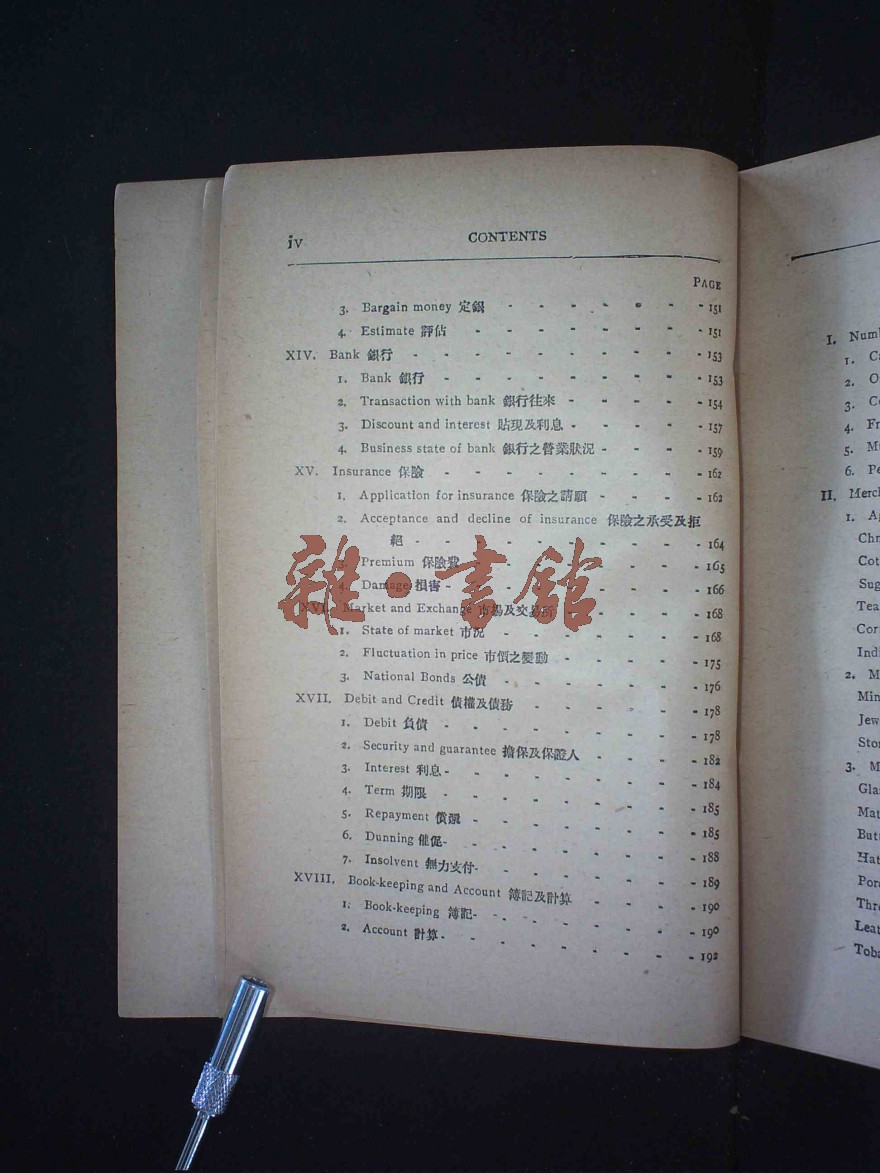 iv CONTENTS
PAGE
3. Bargain money 定銀 - - - - - - - 151
4. Estimate 評估 - - - - - - - - 151
XIV. Bank 銀行 - - - - - - - - - - 153
1. Bank 銀行 - - - - - - - - - 153
2. Transaction with bank 銀行往來 - - - - - 154
3. Discount and interest 貼現及利息 - - - - - 157
4. Business state of bank 銀行之營業狀况 - - - - 159
XV. Insurance 保險 - - - - - - - - - 162
1. Application for insurance 保險之請願 - - - - 162
2. Acceptance and decline of insurance 保險之承受及拒
絕 - - - - - - - - - - 164
3. Premium 保險費 - - - - - - - - 165
4. Damage 損害 - - - - - - - - - 166
XVI. Market and Exchange 市場及交易所 - - - - - 168
1. State of market 市况 - - - - - - - 168
2. Fluctuation in price 市價之變動 - - - - - 175
3. National Bonds 公債 - - - - - - - 176
XVII. Debit and Credit 債權及債務 - - - - - - 178
1. Debit 負債 - - - - - - - - - 178
2. Security and guarantee 擔保及保證人 - - - - 182
3. Interest 利息 - - - - - - - - - 184
4. Term 期限 - - - - - - - - - 185
5. Repayment 償還 - - - - - - - - 185
6. Dunning 催促 - - - - - - - - - 188
7. Insolvent 無力支付 - - - - - - - - 189
XVIII. Book-keeping and Account 簿記及計算 - - - - 190
1. Book-keeping 簿記 - - - - - - - - 190
2. Account 計算 - - - - - - - - - 192
雜·書館
I. Num
1.
2. O
3.
4. Fr
5. M
6. Pe
II. Merc
1. A
Chn
Cot
Sug
Tea
Cor
Indi
2. M
Min
Jew
Sto
3. M
Gla
Mat
Butt
Hat
Por
Thr
Leat
Toba